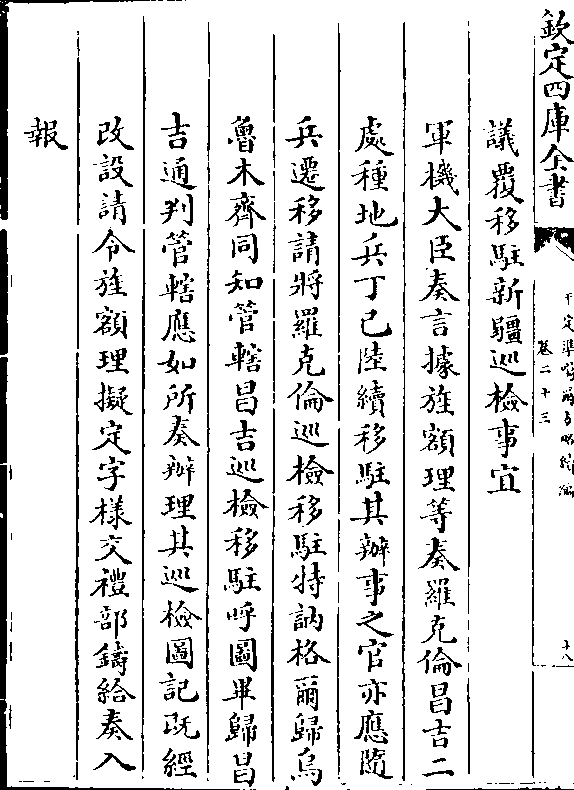 欽定四庫全書
平定準噶爾方略續編
卷二十三
十八
議覆移駐新疆巡檢事宜
軍機大臣奏言據旌額理等奏羅克倫昌吉二
處種地兵丁已陸續移駐其辦事之官亦應隨
兵遷移請將羅克倫巡檢移駐特訥格爾歸烏
魯木齊同知管轄昌吉巡檢移駐呼圖畢歸昌
吉通判管轄應如所奏辦理其巡檢圖記既經
改設請令旌額理擬定字様交禮部鑄給奏入
報